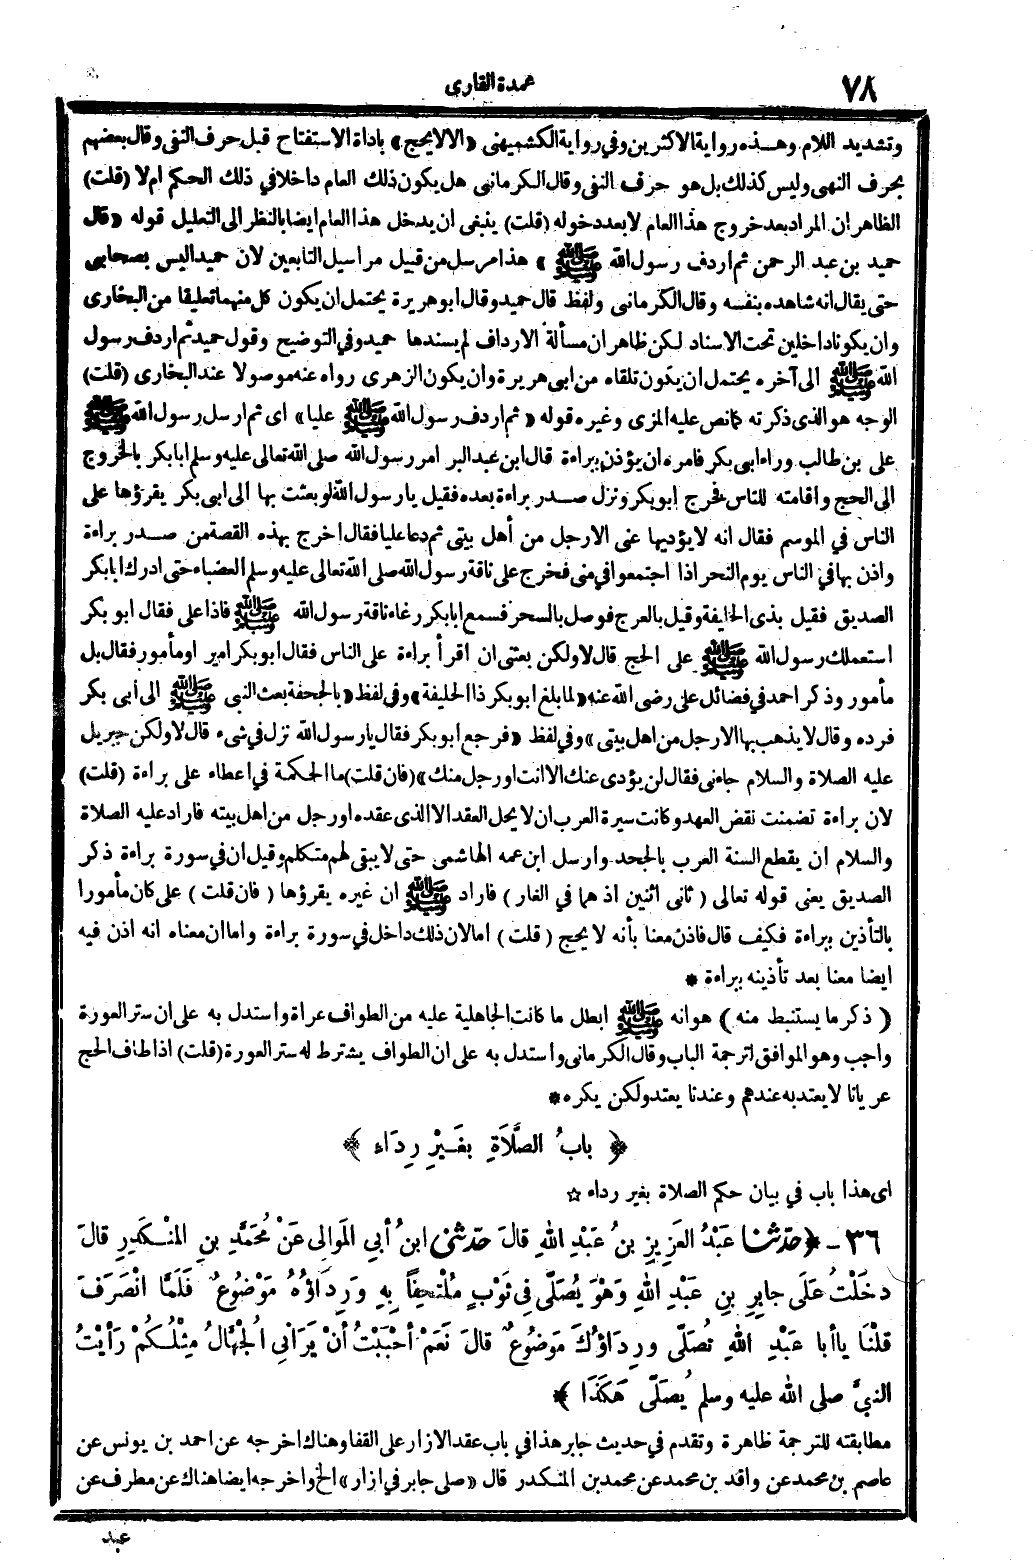 ٧٨
عمدة القارى
وتشديد اللام وهذه رواية الاكثرين وفي رواية الكشميهنى «الا لا يحج» باداة الاستفتاح قبل حرف النفى وقال بعضهم
بحرف النهى وليس كذلك بل هو حرف النفى وقال الكرمانى هل يكون ذلك العام داخلا في ذلك الحكم ام لا (قلت)
الظاهر ان المراد بعد خروج هذا العام لا بعد دخوله (قلت) ينبغى ان يدخل هذا العام ايضا بالنظر الى التعليل قوله «قال
حميد بن عبد الرحمن ثم اردف رسول الله ﷺ» هذا مرسل من قبيل مراسيل التابعين لان حميدا ليس بصحابى
حتى يقال انه شاهده بنفسه وقال الكرمانى ولفظ قال حميد وقال ابو هريرة يحتمل ان يكون كل منهما تعليقا من البخارى
وان يكونا داخلين تحت الاسناد لكن ظاهر ان مسألة الارداف لم يسندها حميد وفي التوضيح وقول حميد ثم اردف رسول
الله ﷺ الى آخره يحتمل ان يكون تلقاه من ابى هريرة وان يكون الزهرى رواه عنه موصولا عند البخارى (قلت)
الوجه هو الذى ذكرته كما نص عليه المزى وغيره قوله «ثم اردف رسول الله ﷺ عليا» اى ثم ارسل رسول الله ﷺ
على بن طالب وراء ابى بكر فامره ان يؤذن ببراءة قال ابن عبد البر امر رسول الله صلى الله تعالى عليه وسلم ابا بكر بالخروج
الى الحج واقامته للناس فخرج ابو بكر ونزل صدر براءة بعده فقيل يا رسول الله لو بعثت بها الى ابى بكر يقرؤها على
الناس في الموسم فقال انه لا يؤديها عنى الا رجل من أهل بيتى ثم دعا عليا فقال اخرج بهذه القصة من صدر براءة
واذن بها في الناس يوم النحر اذا اجتمعوا في منى فخرج على ناقة رسول الله صلى الله تعالى عليه وسلم العضباء حتى ادرك ابا بكر
الصديق فقيل بذى الحليفة وقيل بالعرج فوصل بالسحر فسمع ابا بكر رغاء ناقة رسول الله ﷺ فاذا على فقال ابو بكر
استعملك رسول الله ﷺ على الحج قال لا ولكن بعثنى ان اقرأ براءة على الناس فقال ابو بكر امير او مأمور فقال بل
مأمور وذكر احمد في فضائل على رضى الله عنه «لما بلغ ابو بكر ذا الحليفة» وفي لفظ «بالجحفة بعث النبى ﷺ الى أبى بكر
فرده وقال لا يذهب بها الا رجل من اهل بيتى» وفي لفظ «فرجع ابو بكر فقال يا رسول الله نزل في شىء قال لا ولكن جبريل
عليه الصلاة والسلام جاءنى فقال لن يؤدى عنك الا انت او رجل منك» (فان قلت) ما الحكمة في اعطاء على براءة (قلت)
لان براءة تضمنت نقض العهد وكانت سيرة العرب ان لا يحل العقد الا الذى عقده او رجل من اهل بيته فاراد عليه الصلاة
والسلام ان يقطع السنة العرب بالجحد وارسل ابن عمه الهاشمى حتى لا يبقى لهم متكلم وقيل ان في سورة براءة ذكر
الصديق يعنى قوله تعالى (ثانى اثنين اذ هما في الغار) فاراد ﷺ ان غيره يقرؤها (فان قلت) على كان مأمورا
بالتأذين ببراءة فكيف قال فاذن معنا بأنه لا يحج (قلت) اما لان ذلك داخل في سورة براءة واما ان معناه انه اذن فيه
ايضا معنا بعد تأذينه ببراءة *
(ذكر ما يستنبط منه) هو انه ﷺ ابطل ما كانت الجاهلية عليه من الطواف عراة واستدل به على ان ستر العورة
واجب وهو الموافق لترجمة الباب وقال الكرمانى واستدل به على ان الطواف يشترط له ستر العورة (قلت) اذا طاف الحج
عريانا لا يعتد به عندهم وعندنا يعتد ولكن يكره *
﴿ بابُ الصَّلَاةِ بِغَيْرِ رِدَاءٍ ﴾
اى هذا باب في بيان حكم الصلاة بغير رداء ☆
٣٦ - ﴿حَدَّثَنا عَبْدُ العَزِيزِ بنُ عَبْدِ اللهِ قالَ حَدَّثَنى ابنُ أبي المَوالِى عَنْ مُحَمَّدِ بنِ المُنْكَدِرِ قالَ
دخَلْتُ علَى جابِرِ بنِ عَبْدِ اللهِ وَهْوَ يُصَلِّى فِي ثَوْبٍ مُلْتَحِفاً بِهِ ورِدَاؤُهُ مَوْضُوعٌ فَلَمَّا انْصَرَفَ
قلْنَا يا أبا عَبْدِ اللهِ تُصَلِّى ورِدَاؤُكَ مَوْضُوعٌ قالَ نَعَمْ أحْبَبْتُ أنْ يَرَانِي الجُهَّالُ مِثْلُكُمْ رَأيْتُ
النبيَّ صلى الله عليه وسلم يُصَلِّى هَكَذَا﴾ *
مطابقته للترجمة ظاهرة وتقدم في حديث جابر هذا في باب عقد الازار على القفا وهناك اخرجه عن احمد بن يونس عن
عاصم بن محمد عن واقد بن محمد عن محمد بن المنكدر قال «صلى جابر في ازار» الخ واخرجه ايضا هناك عن مطرف عن
عبد